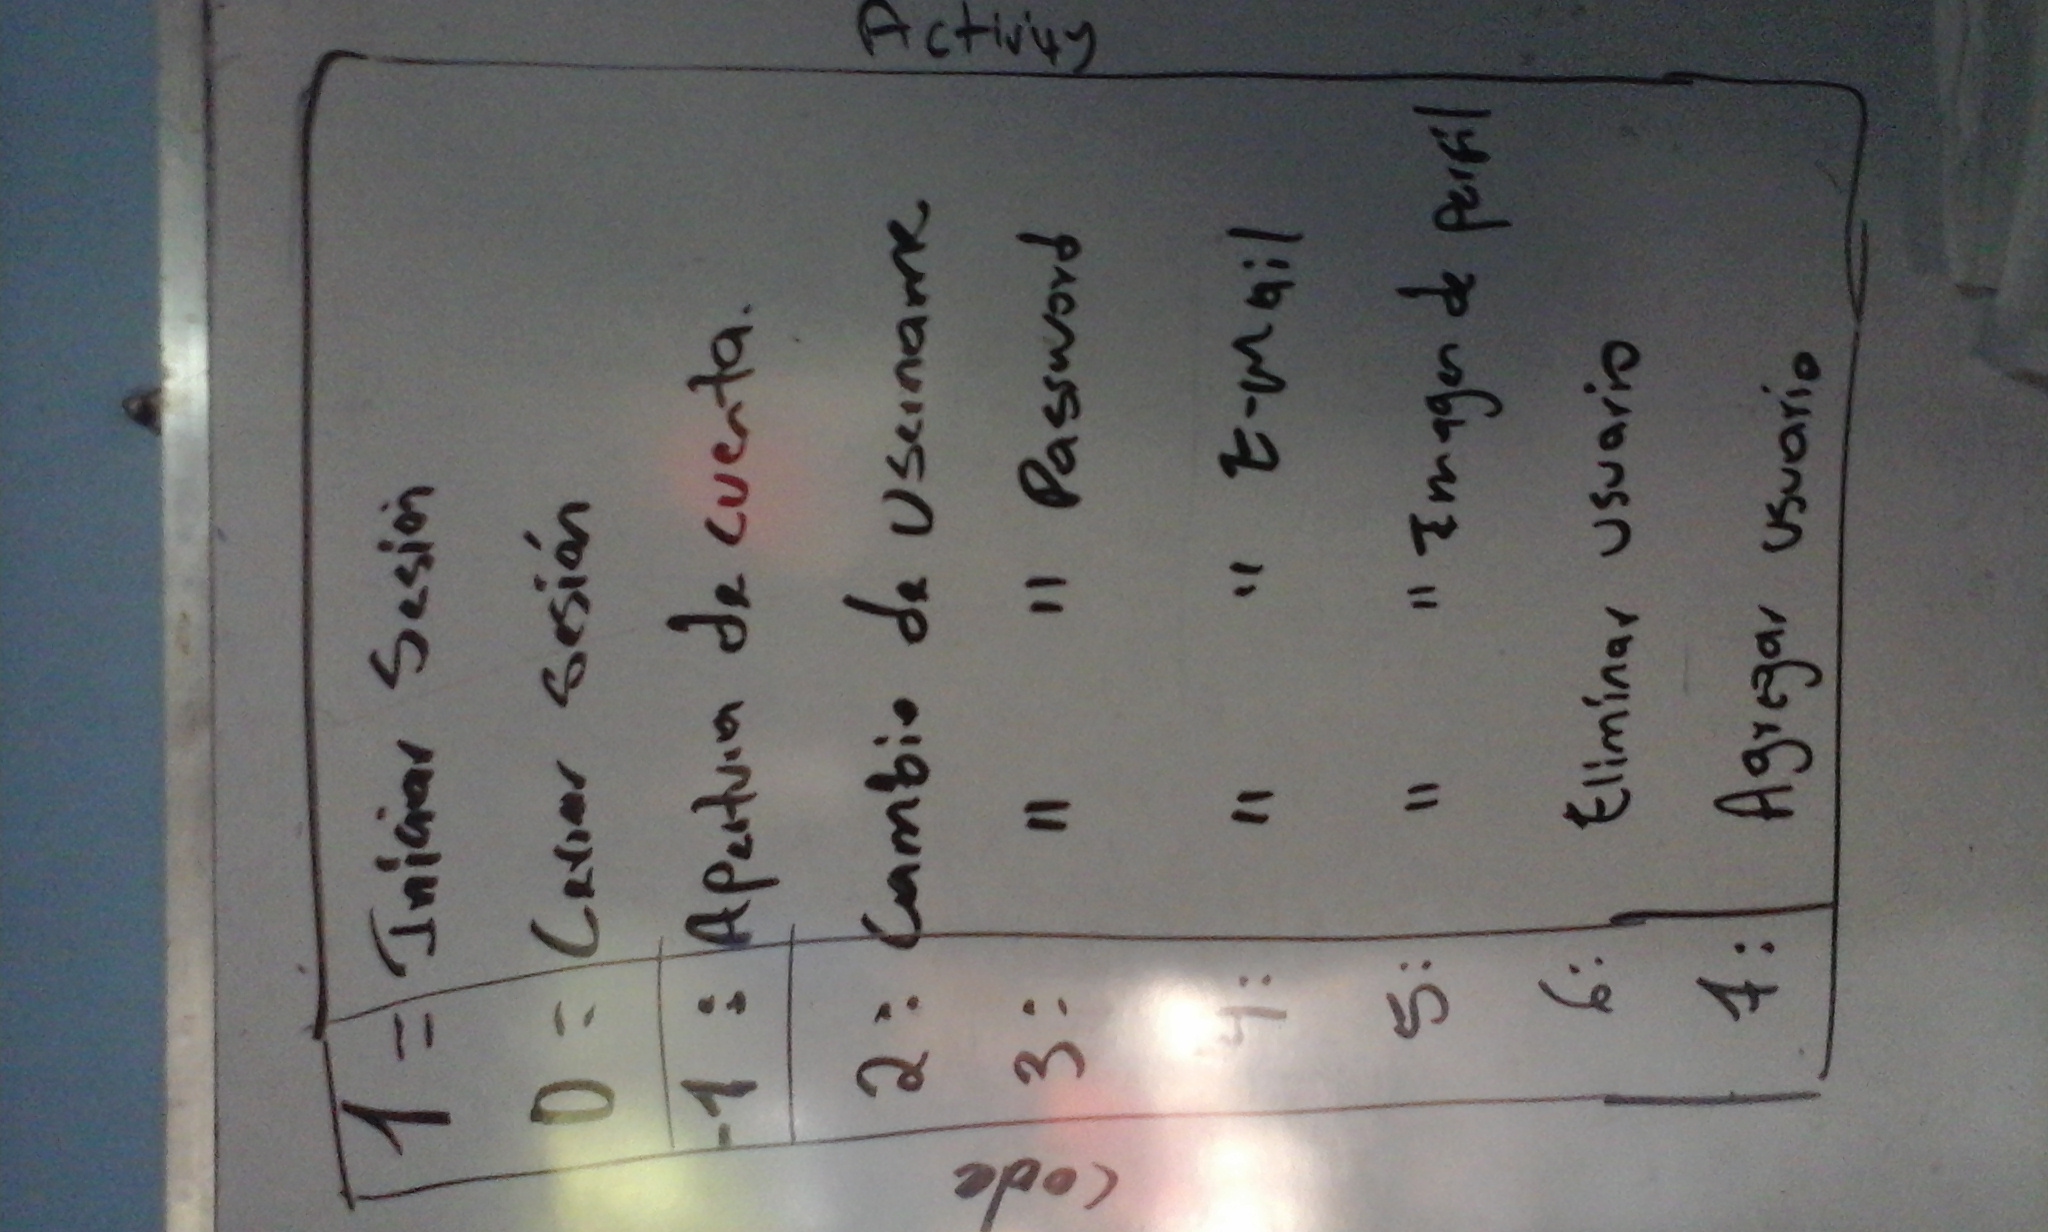 1 = Iniciar Sesión
0 = Cerrar Sesión
-1 : Apertura de cuenta.
2 : Cambio de Username
3 : " " Password
4 : " " E-mail
5 : " " Imagen de perfil
6 : Eliminar usuario
7 : Agregar usuario
code
Activiy